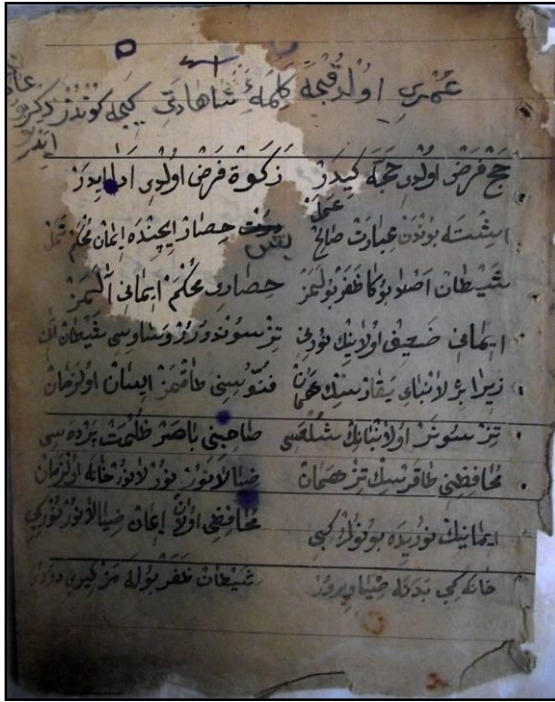 عمرى اولدقجه كلمهٔ شاهادتى كيجه كوندز
حج فرض اولدى حجه كيدر زكوة فرض اولدى ادا ايدر
اشته بوندن عبارت صالح عمل بش حصار ايچنده ايمان محكم
شيطان اصلا بوكا ظفر بولمز حصارى محكم ايمانى آلمز
ايمانى ضعيف اولانيك نورنى تز سوندورر وسواسى شيطان
زيرا بر لانباى يقارسك همان فنوسنى طاقمز ايسان اول زمان
تز سونر اول لانبانك شعلهسى صاحبنى باصر ظلمت پردهسى
محافظنى طاقرسك تز همان ضيالانور نور لانور خانه اول زمان
ايمانيك نوريده بونولر كبى محافظى اولان ايمان ضيالانور
خانه كبى بدنه ضيا ويرور شيطان ظفر بوله مز كيرى دورر